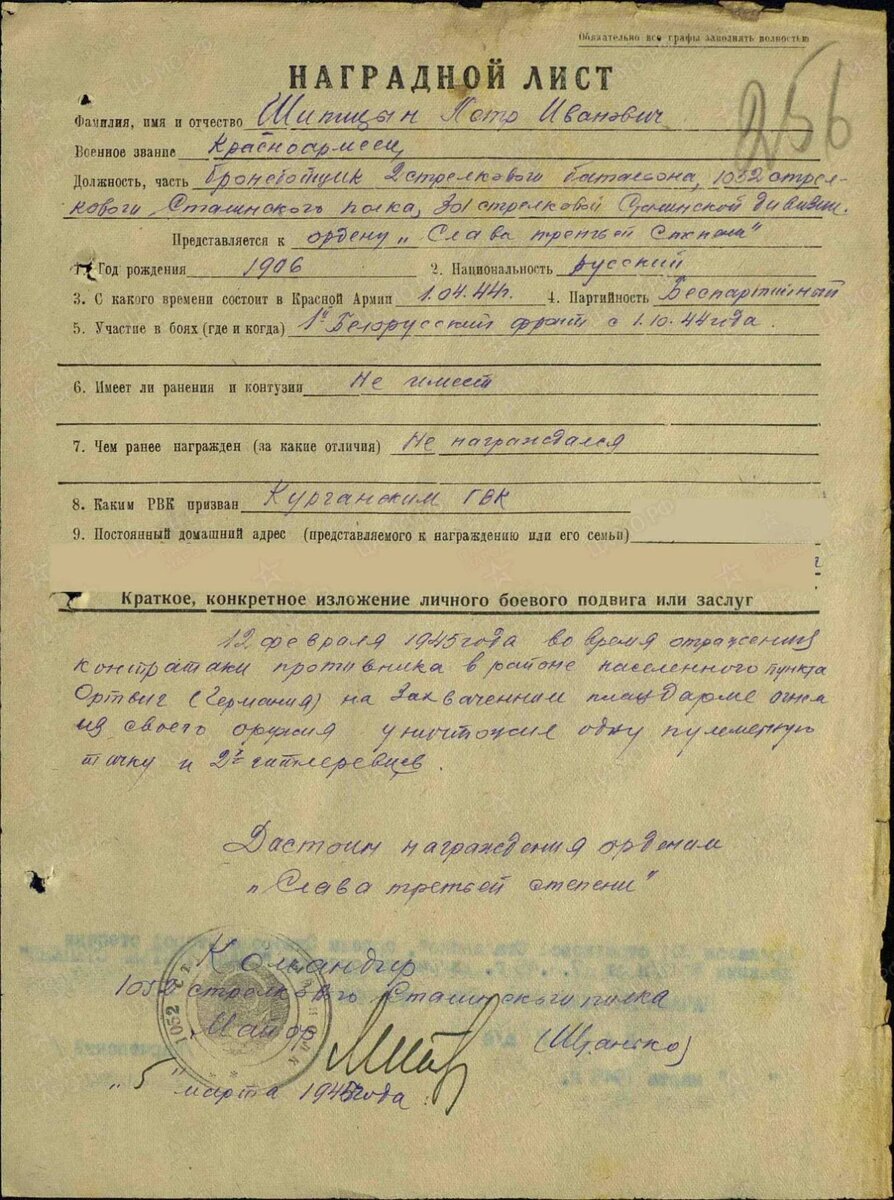 Обязательно все графы заполнять полностью
256
НАГРАДНОЙ ЛИСТ
Фамилия, имя и отчество Шипицын Петр Иванович
Военное звание Красноармеец
Должность, часть бронебойщик 2 стрелкового батальона, 1052 стрел-
кового Сталинского полка, 301 стрелковой Сталинской дивизии.
Представляется к ордену „Слава третьей степени"
1. Год рождения 1906 2. Национальность русский
3. С какого времени состоит в Красной Армии 1.04.44г. 4. Партийность Беспартийный
5. Участие в боях (где и когда) 1й Белорусский фронт с 1.10.44 года.
6. Имеет ли ранения и контузии Не имеет
7. Чем ранее награжден (за какие отличия) Не награждался
8. Каким РВК призван Курганским ГВК
9. Постоянный домашний адрес (представляемого к награждению или его семьи)
Краткое, конкретное изложение личного боевого подвига или заслуг
12 февраля 1945 года во время отражения
контратаки противника в районе населенного пункта
Ортвиг (Германия) на захваченном плацдарме огнем
из своего оружия уничтожил одну пулеметную
точку и 2х гитлеревцев.
Дастоин награждения орденом
„Слава третьей степени"
Командир
1052 стрелкового Сталинского полка
Майор (Шранко)
„5" марта 1945 года.